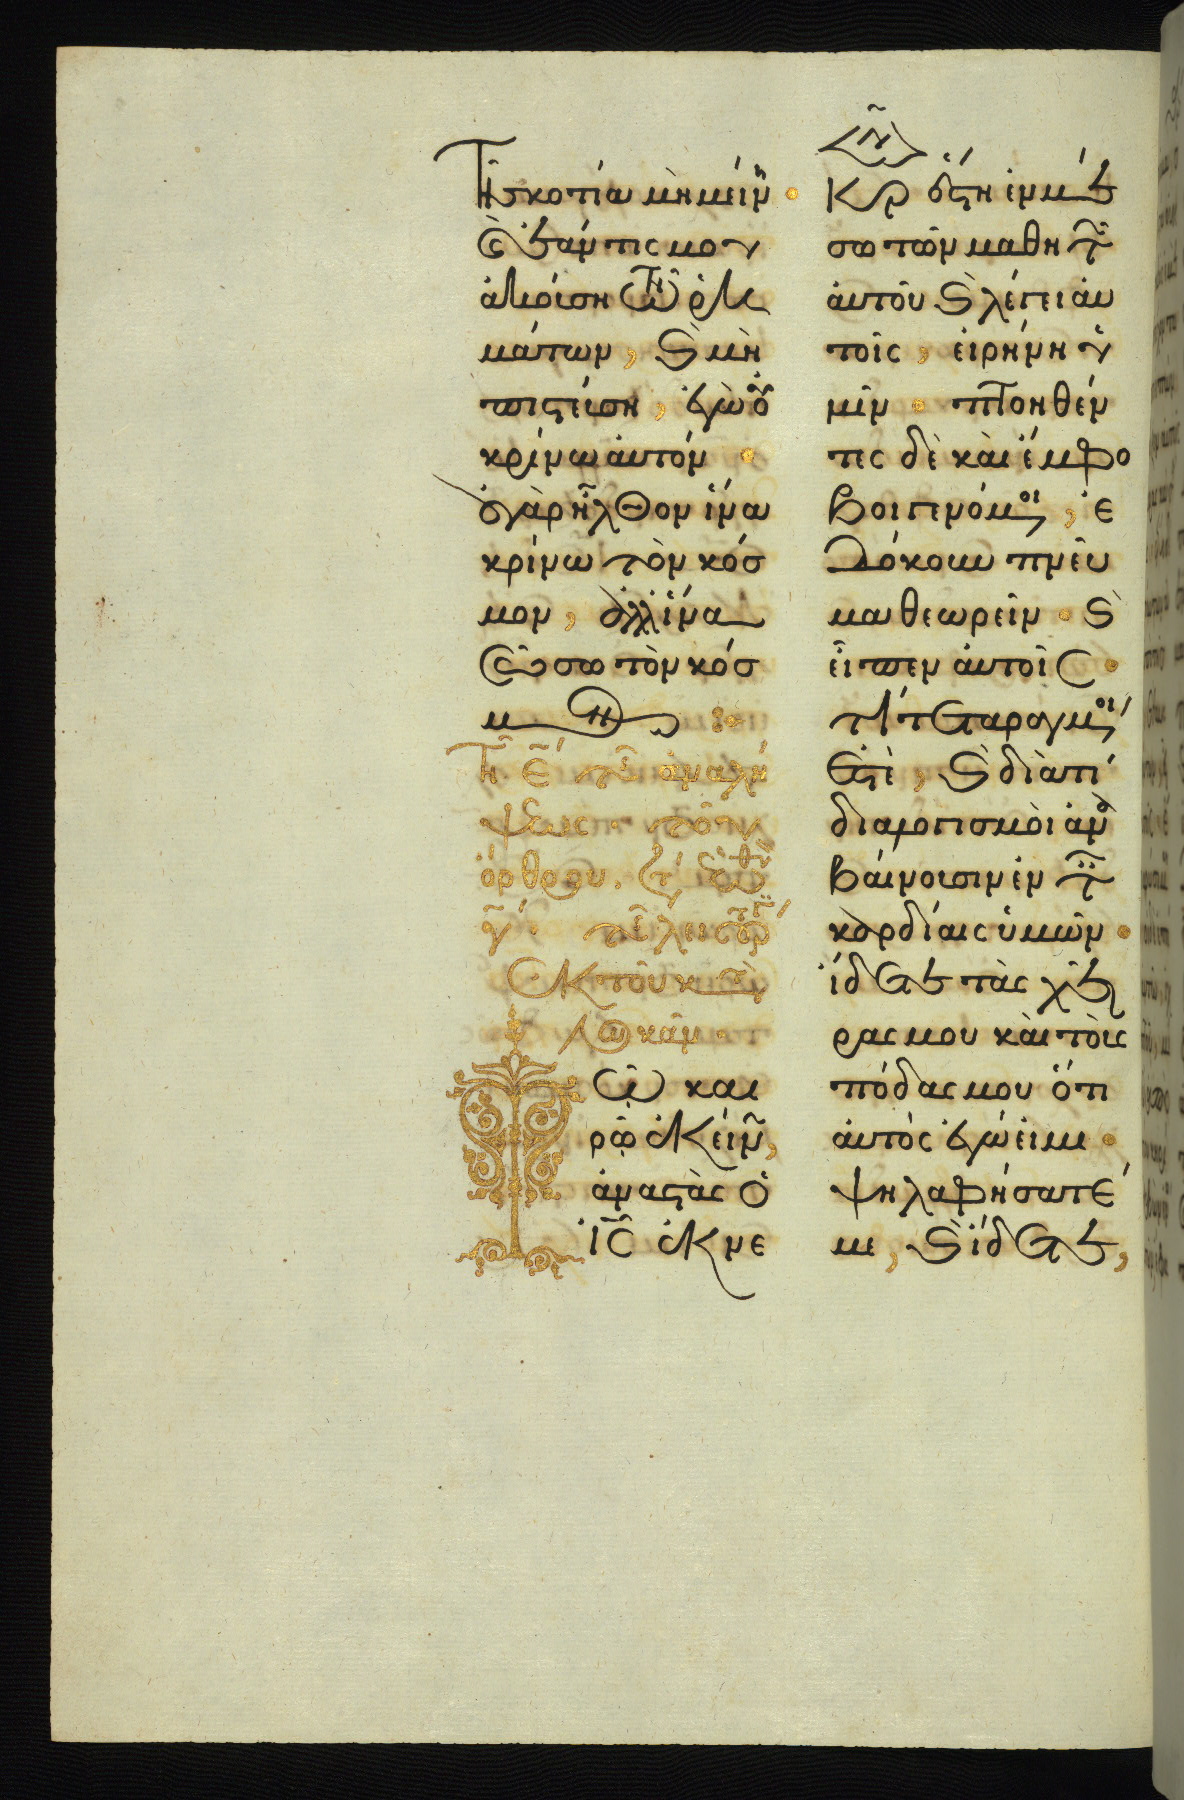 τῆ σκοτία μὴ μείνη·
καὶ ἐάν τις μου
ἀκούση τῶν ῥη
μάτων, καὶ μὴ
πιστεύση, ἐγὼ οὐ
κρίνω αὐτόν·
οὐ γὰρ ἦλθον ἵνα
κρίνω τὸν κόσ
μον, ἀλλ' ἵνα
σώσω τὸν κόσ
μον:·
Τῆ ε΄ τῆς ἀναλή
ψεως· εἰς τὸν
ὄρθρον.
ἐκ τοῦ κατὰ
Λουκᾶν·
Τῶ και
ρῷ ἐκείνω,
ἀναστὰς ὁ
ις ἐκ νε
κρῶν ἔστη ἐν μέ
σω τῶν μαθητῶν
αὐτοῦ καὶ λέγει αὐ
τοῖς, εἰρήνη ὑ
μῖν· πτοηθέν
τες δὲ καὶ ἔμφο
βοι γενόμενοι, ἐ
δόκουν πνεῦ
μα θεωρεῖν· καὶ
εἶπεν αὐτοῖς·
τί τεταραγμένοι
ἐστὲ, καὶ διατί
διαλογισμοὶ ἀνα
βαίνουσιν ἐν ταῖς
καρδίαις ὑμῶν·
ἴδετε τὰς χεῖ
ρας μου καὶ τοὺς
πόδας μου ὅτι
αὐτὸς ἐγώ εἰμι·
ψηλαφήσατέ
με, καὶ ἴδετε,